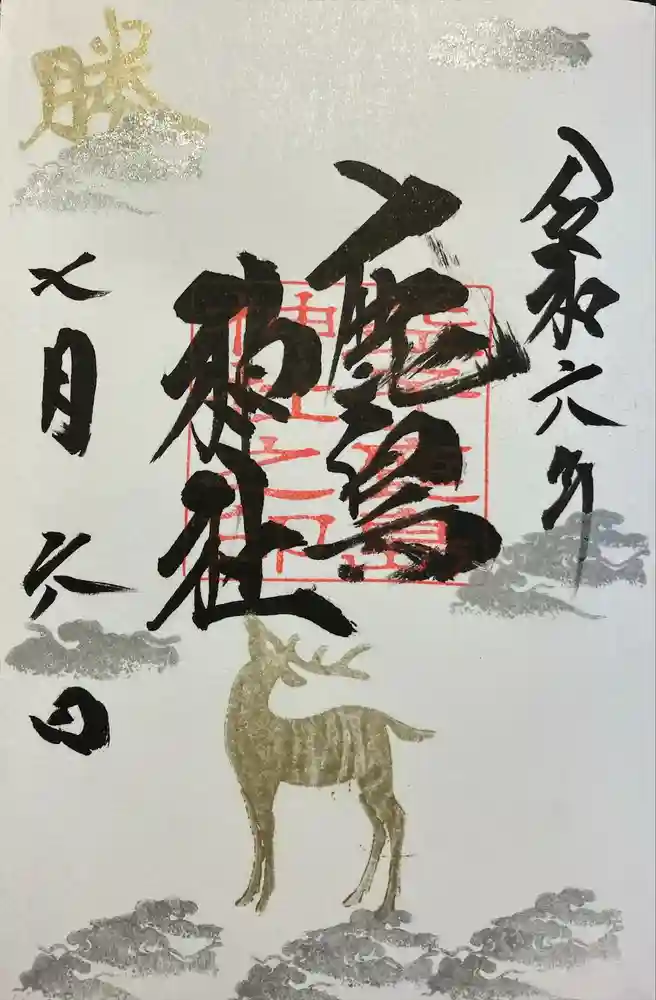 令和六年
鹿島
神社
神社之印
勝
七月六日